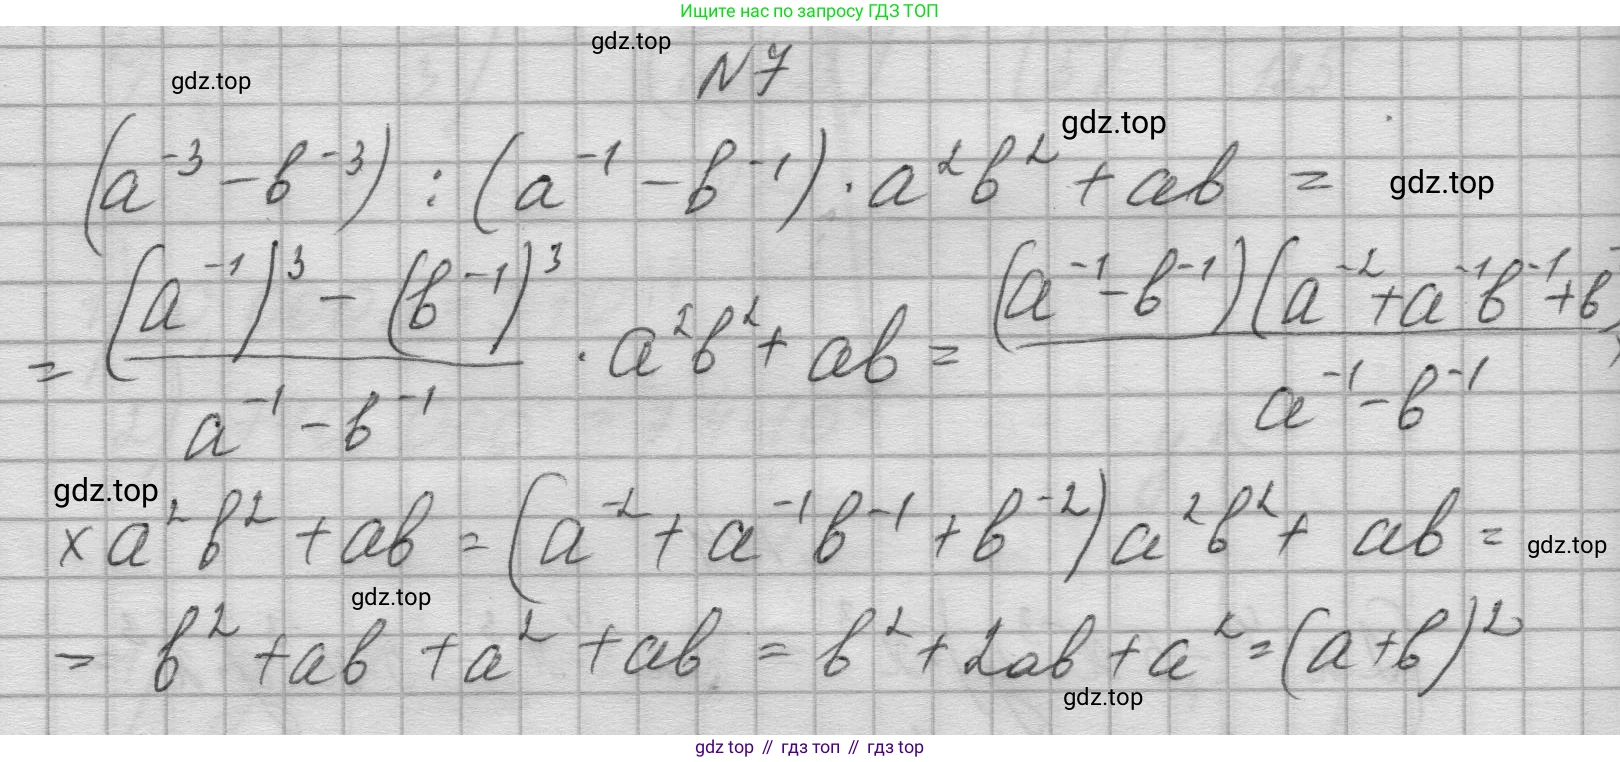 Ищите нас по запросу ГДЗ ТОП
gdz.top
N 7
gdz.top
gdz.top
(a⁻³ - b⁻³) : (a⁻¹ - b⁻¹) · a²b² + ab =
gdz.top
= ((a⁻¹)³ - (b⁻¹)³) / (a⁻¹ - b⁻¹) · a²b² + ab = (a⁻¹ - b⁻¹)(a⁻² + a⁻¹b⁻¹ + b / (a⁻¹ - b⁻¹)
gdz.top
× a²b² + ab = (a⁻² + a⁻¹b⁻¹ + b⁻²) a²b² + ab =
gdz.top
gdz.top
= b² + ab + a² + ab = b² + 2ab + a² = (a+b)²
gdz.top
gdz top // гдз топ // гдз top